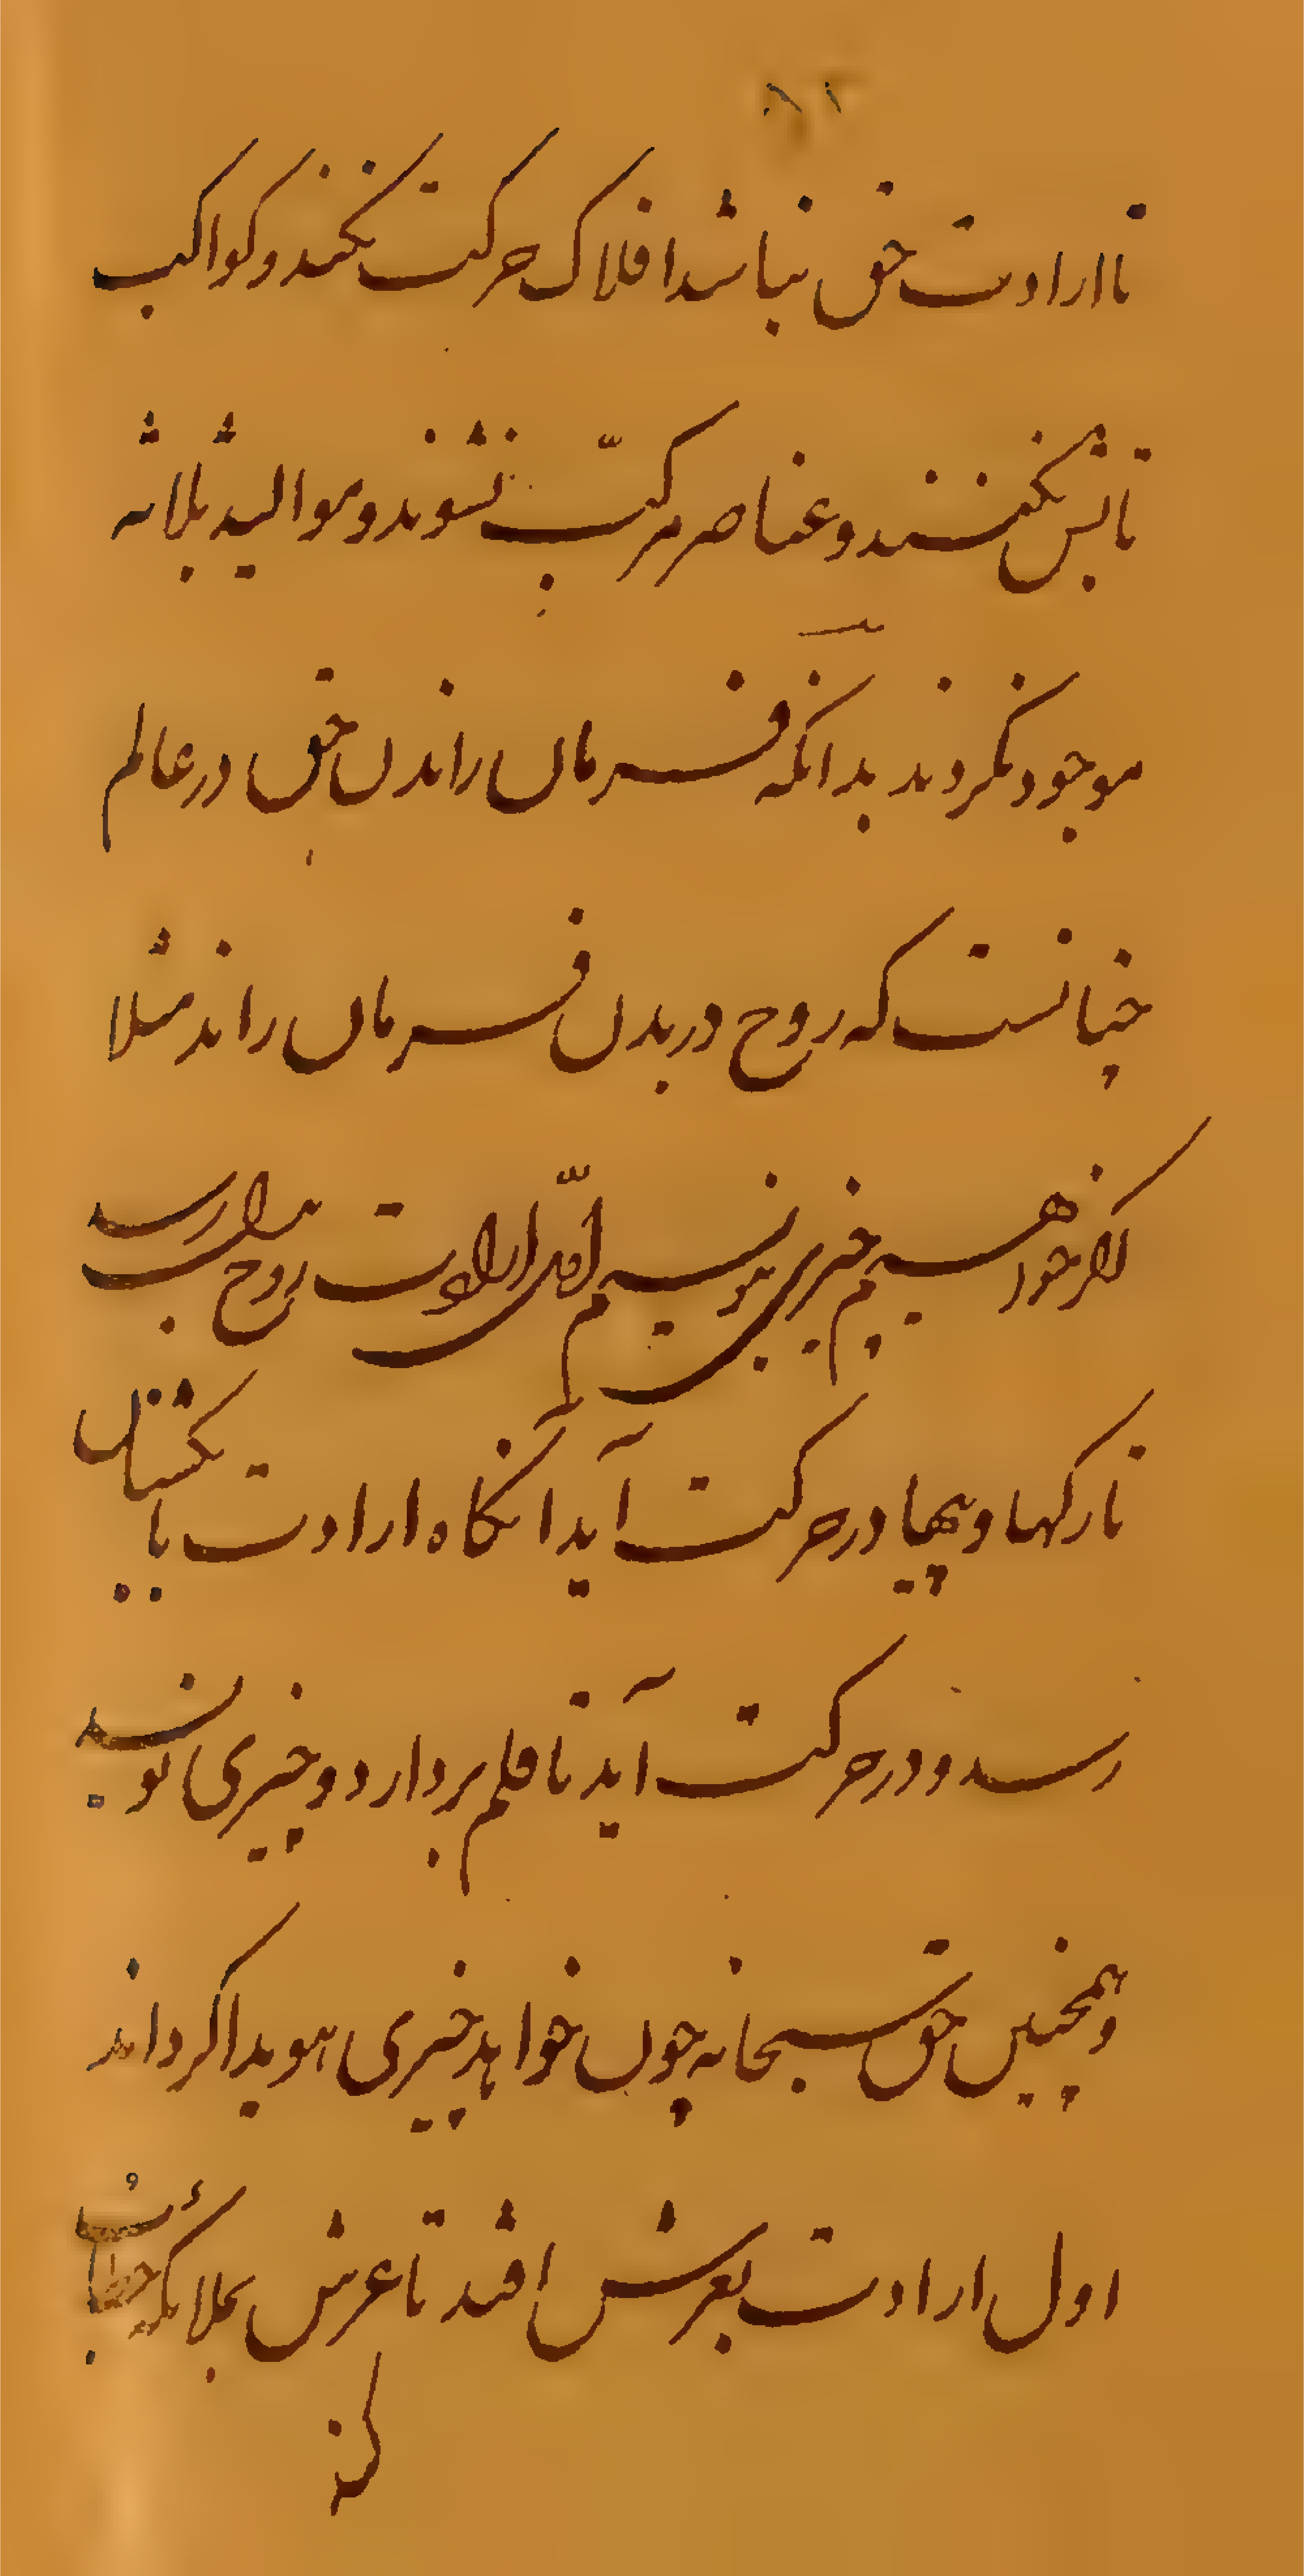 تا ارادت حق نباشد افلاک حرکت نکنند و کواکب
تابش نکنند و عناصر مرکّب نشوند و موالید ثلاثه
موجود نکردند بدانکه فرمان راندن حق در عالم
چنانست که روح در بدن فرمان راند مثلا
اکر خواهیم چیزی بنویسیم اوّل ارادت روح بدل رسد
تا رکها و پیها در حرکت آید آنکاه ارادت با نکشتان
رسد و در حرکت آید تا قلم بردارد و چیزی نویسد
و همچنین حق سبحانه چون خواهد چیزی هویدا کرداند
اول ارادت بعرش افتد تا عرش بملائکه
کند